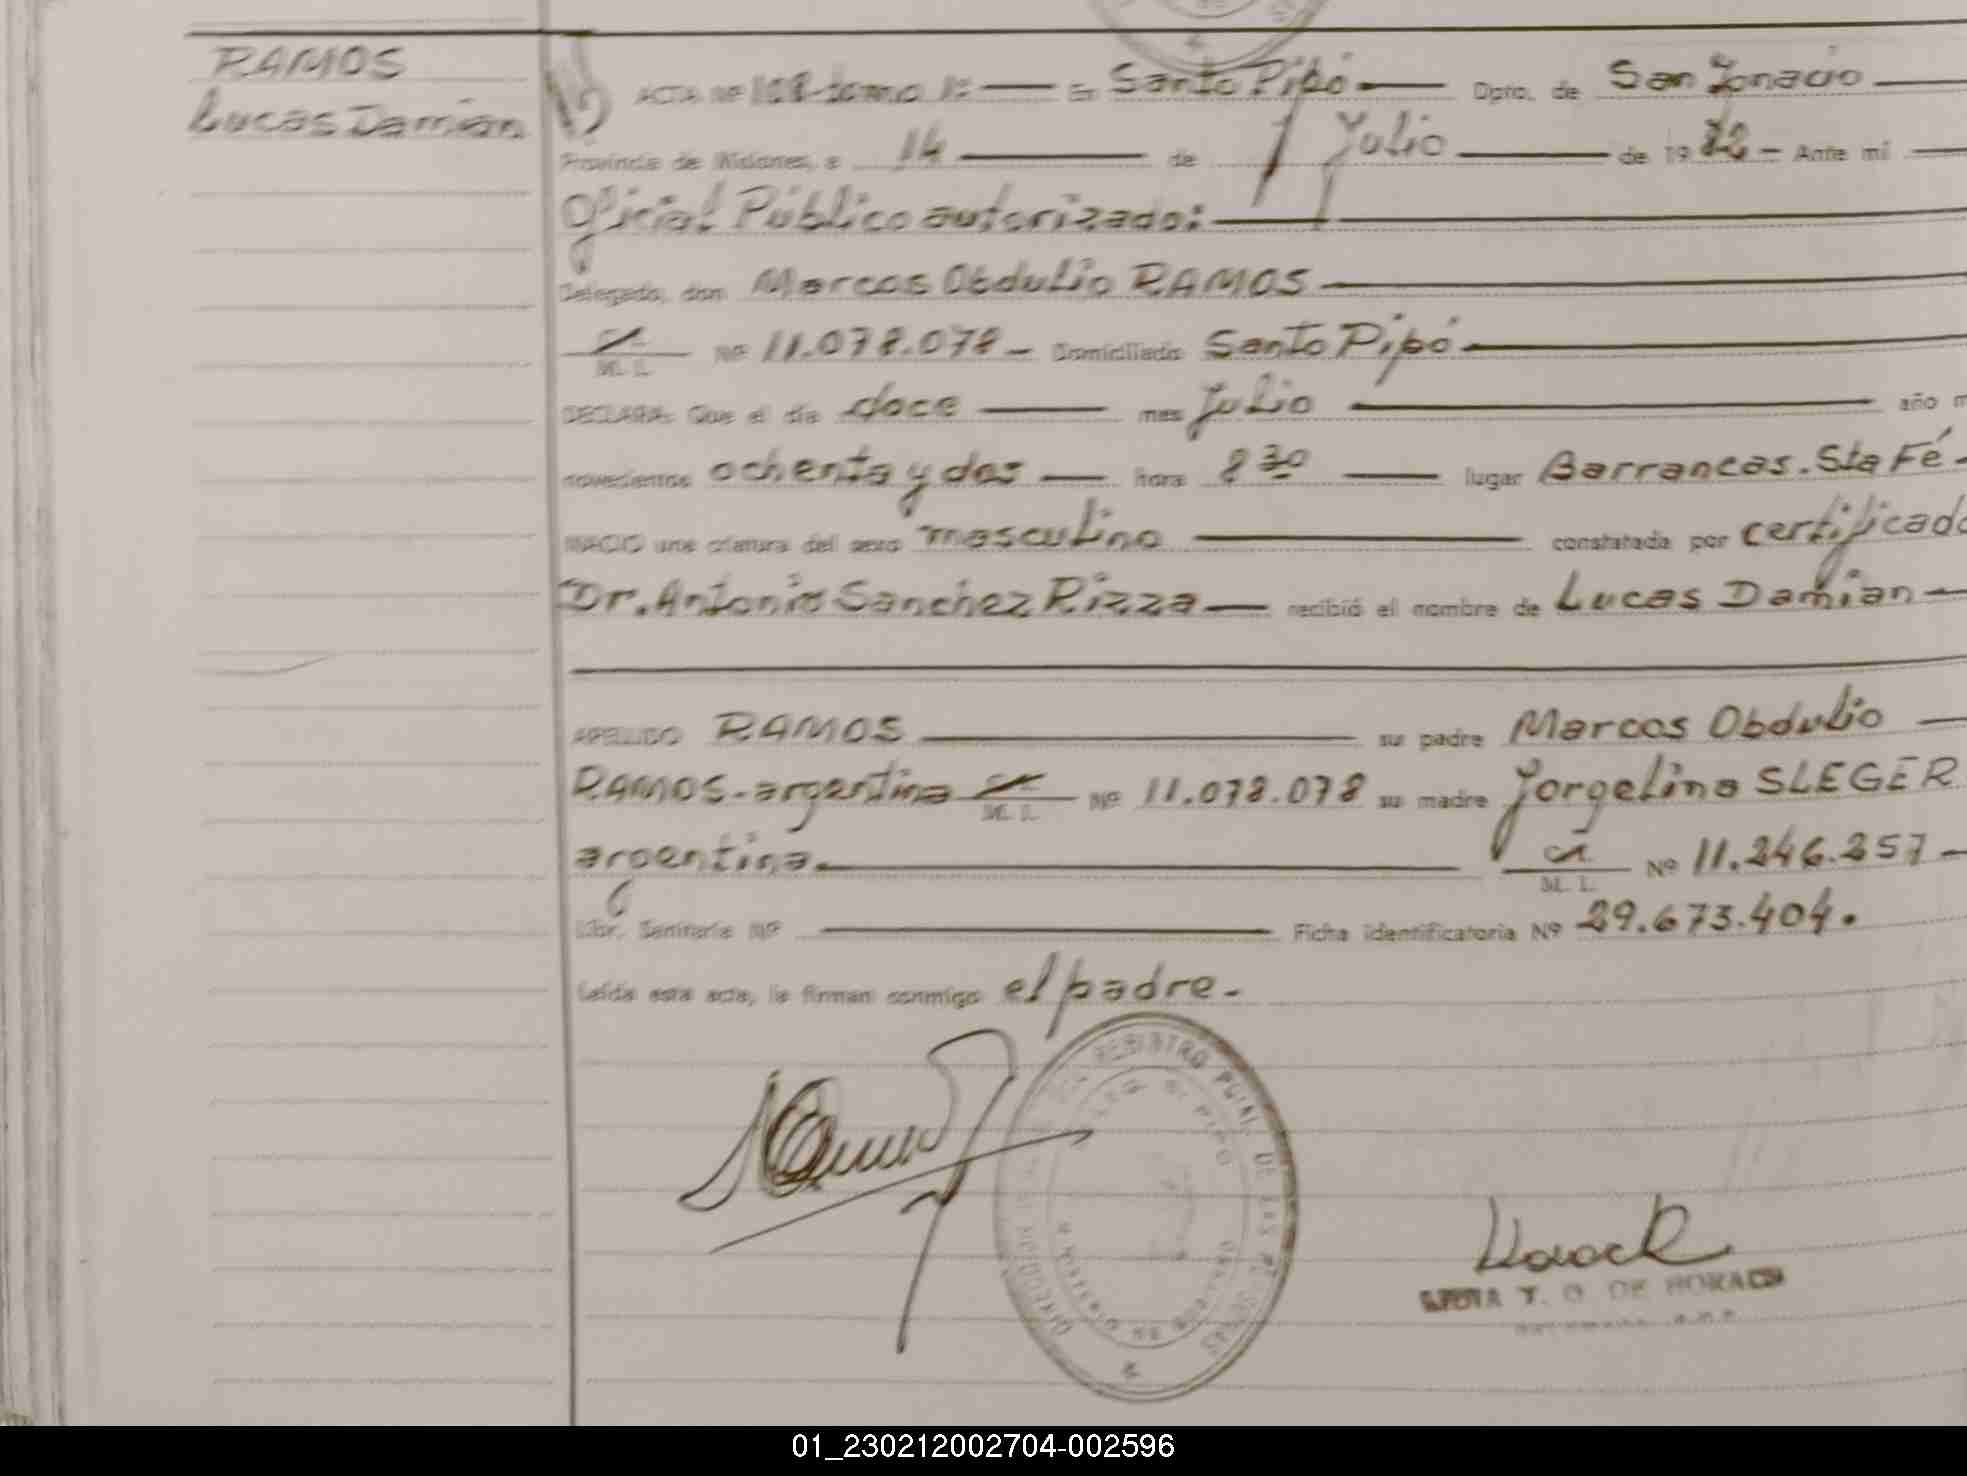 RAMOS
Lucas Damian
ACTA Nº 108-tomo 1º — En Santo Pipó — Dpto. de San Ignacio —
Provincia de Misiones, a 14 — de Julio — de 1982 — Ante mi —
Oficial Público autorizado: —
Delegado, don Marcos Obdulio RAMOS —
M. I. Nº 11.078.078 — Domiciliado Santo Pipó —
DECLARA: Que el día doce — mes Julio — año m
novecientos ochenta y dos — hora 8 30 — lugar Barrancas. Sta Fé -
NACIO una criatura del sexo masculino — constatada por certificado
Dr. Antonio Sanchez Rizza — recibió el nombre de Lucas Damian —
APELLIDO RAMOS — su padre Marcos Obdulio —
RAMOS - argentina M. I. Nº 11.078.078 su madre Jorgelina SLEGER
argentina. — M. I. Nº 11.246.257 —
Libr. Sanitaria Nº — Ficha identificatoria Nº 29.673.404.
Leída esta acta, la firman conmigo el padre. -
REGISTRO PCIAL. DE LAS PERSONAS
T. O DE HORACK
01_230212002704-002596